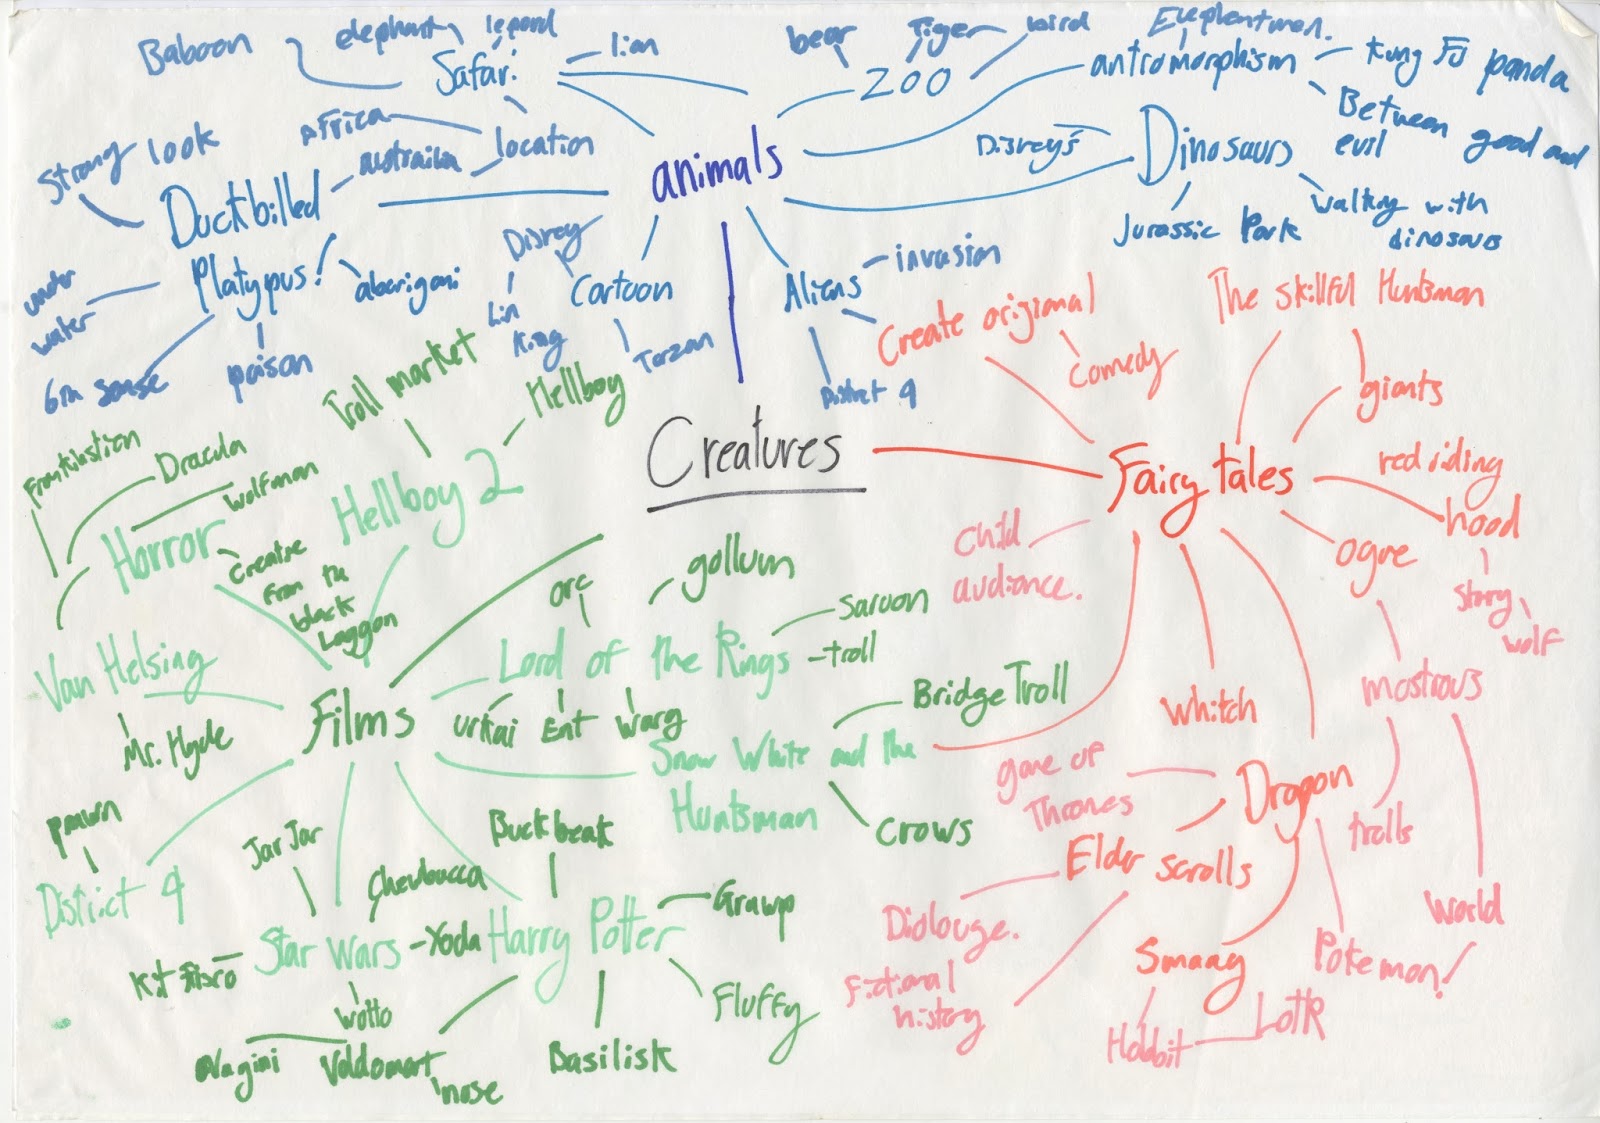 Baboon
elephant
lepord
Safari
lian
location
Africa
australia
bear
Tiger
bird
ZOO
Elephantman.
antromorphism
Kung Fu panda
Between good and
evil
Disney's
Dinosaurs
Jurassic Park
walking with
dinosaurs
animals
Strong look
Duckbilled
Platypus!
under
water
6th sense
poison
aborigani
Disney
Cartoon
Lin
King
Tarzan
Aliens
invasion
District 9
Creatures
Create original
comedy
The skillful Huntsman
giants
Fairy tales
red riding
hood
story
wolf
ogre
mostrous
trolls
world
child
audiance.
Whitch
Dragon
game of
Thrones
Elder scrolls
Diolouge.
Fictional
history
Smaag
Hobbit
LOTR
Pokemon!
Troll market
Hellboy
Hellboy 2
Frankinstien
Dracula
Wolfman
Horror
Creatre
from the
black
Laggon
Van Helsing
Mr. Hyde
Films
orc
gollum
Lord of the Rings
Saruon
troll
urkai
Ent
Warg
Snow White and the
Huntsman
Bridge Troll
Crows
prawn
District 9
Jar Jar
Chewbacca
Star Wars
Yoda
Kit Fisto
Watto
Harry Potter
Buckbeak
Grawp
Fluffy
Basilisk
Voldomort
nose
Nagini